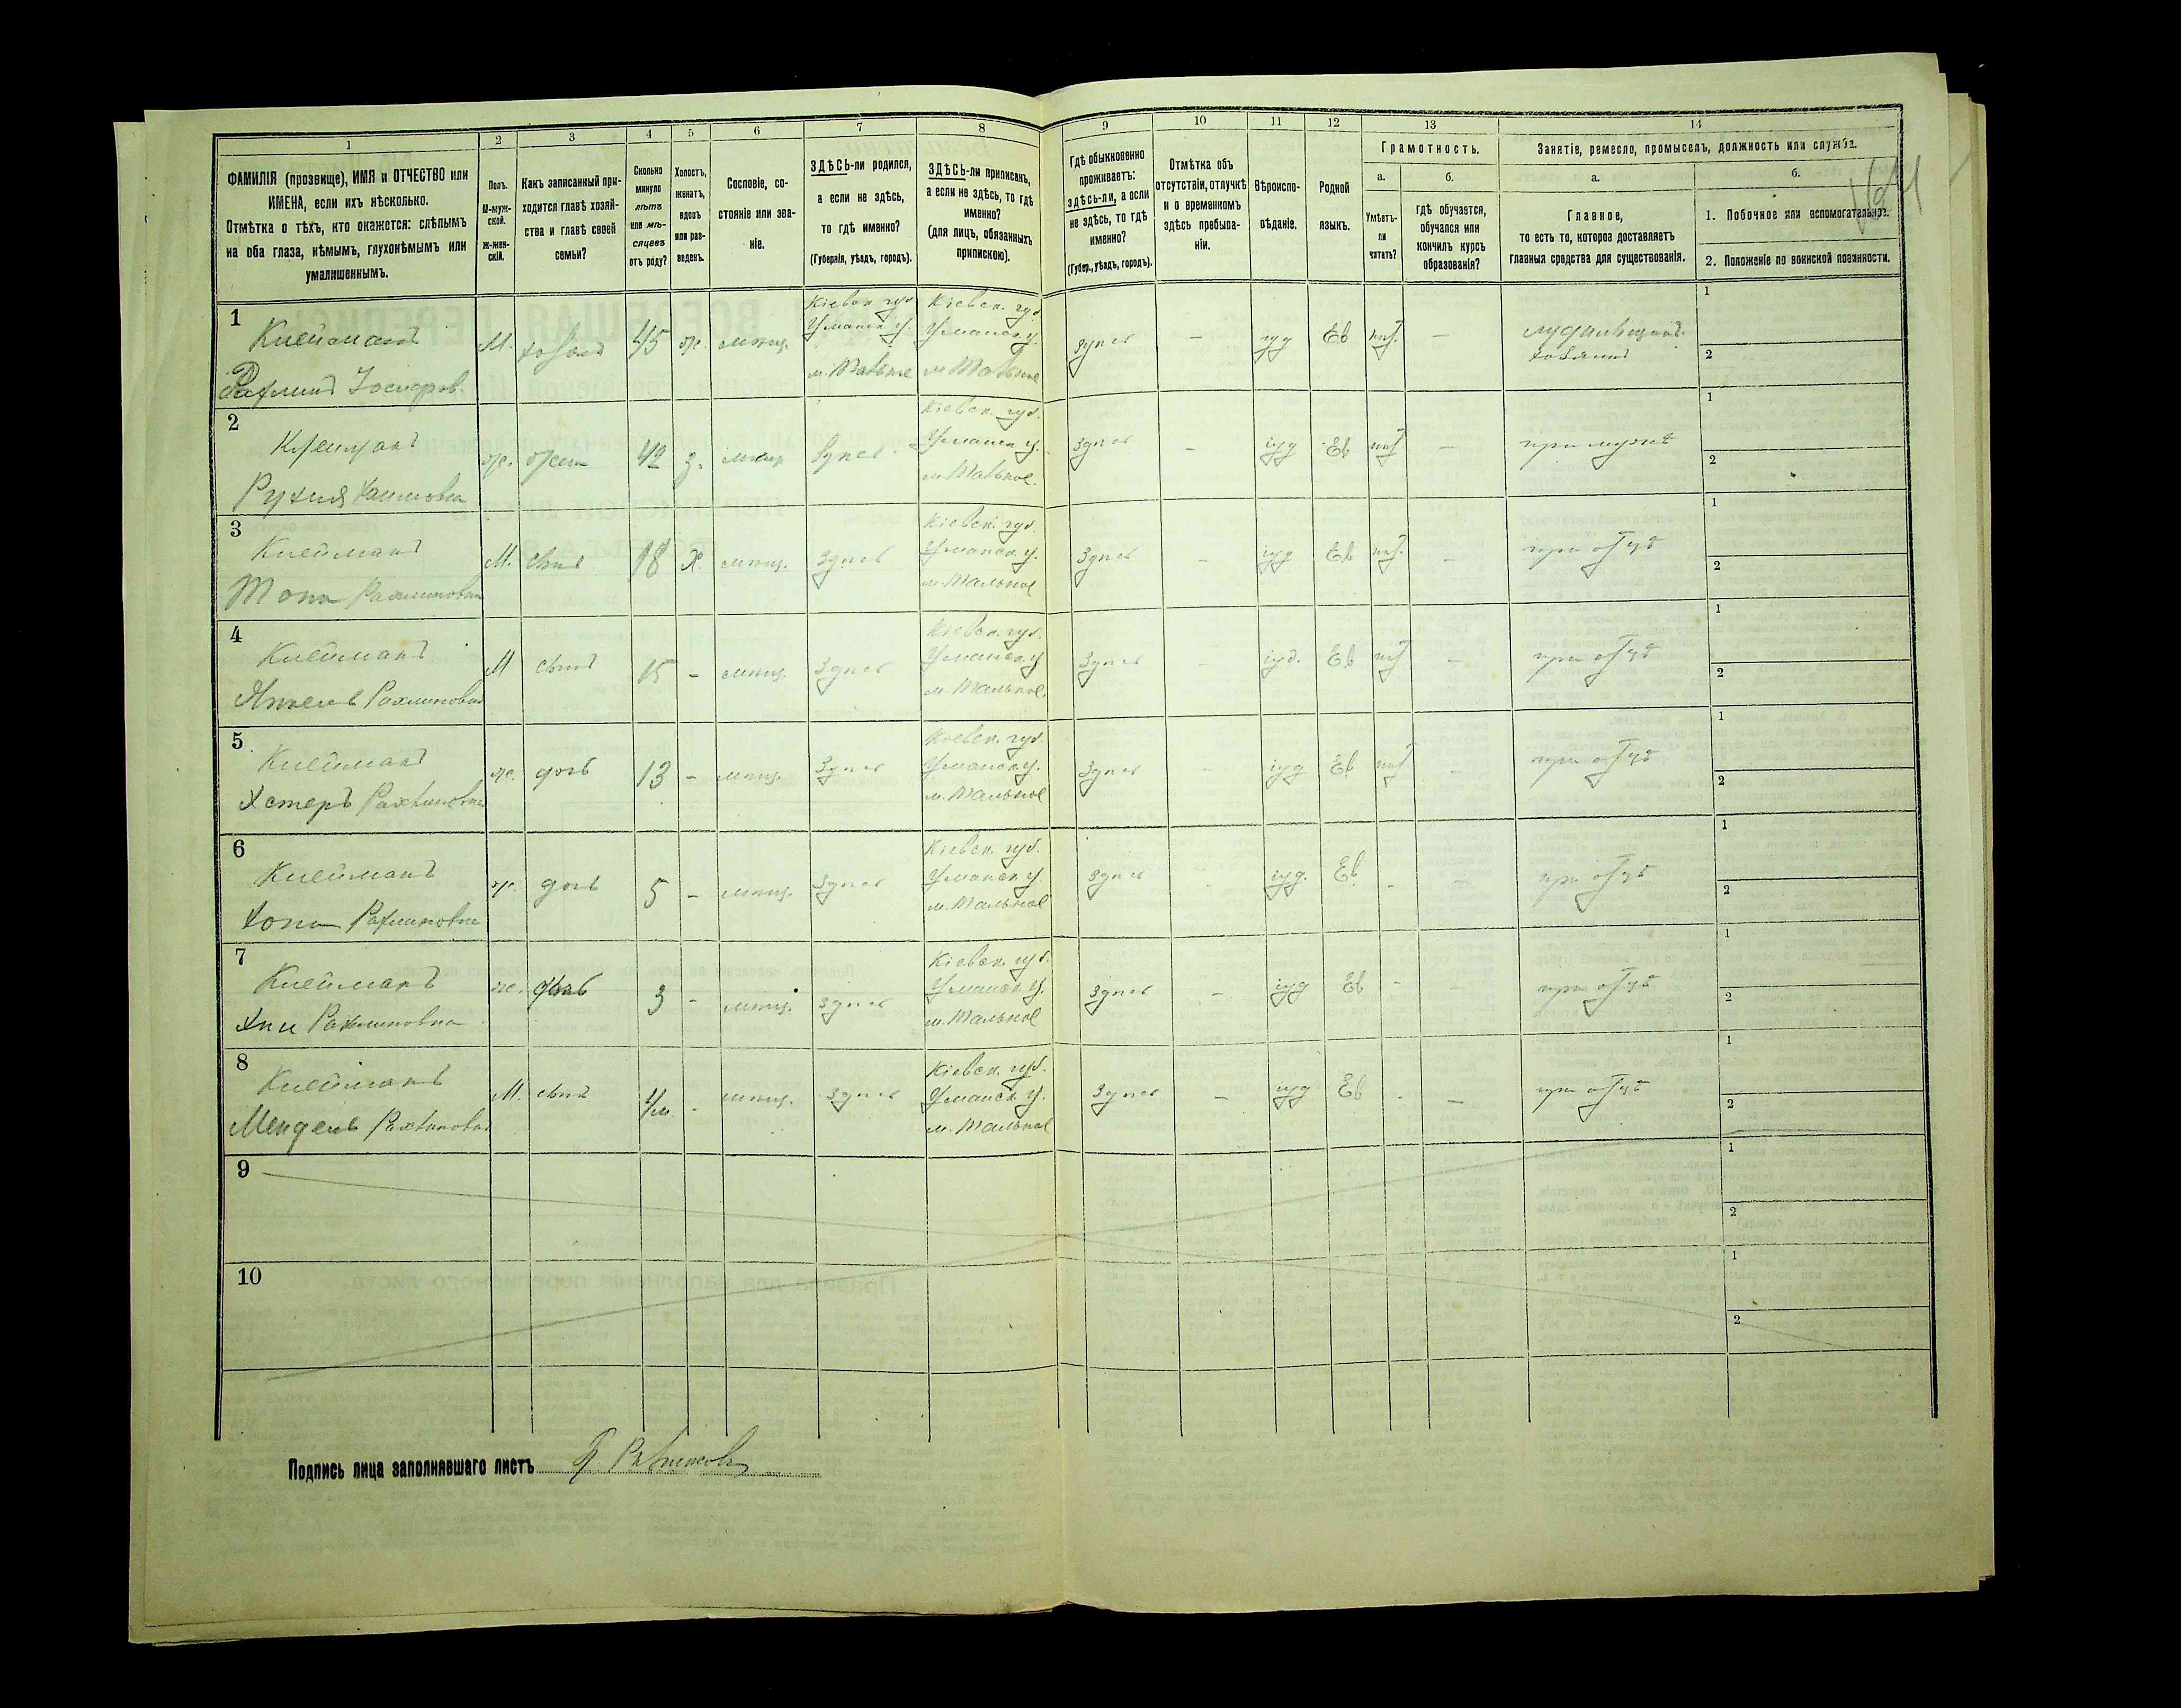 1 2 3 4 5 6 7 8 9 10 11 12 13 14
ФАМИЛІЯ (прозвище), ИМЯ и ОТЧЕСТВО или ИМЕНА, если ихъ нѣсколько.
Отмѣтка о тѣхъ, кто окажется: слѣпымъ на оба глаза, нѣмымъ, глухонѣмымъ или умалишеннымъ.
Полъ.
М-муж-
ской.
ж-жен-
скій.
Какъ записанный при-
ходится главѣ хозяй-
ства и главѣ своей
семьи?
Сколько
минуло
лѣтъ
или мѣ-
сяцевъ
отъ роду?
Холостъ,
женатъ,
вдовъ
или раз-
веденъ.
Сословіе, со-
стояніе или зва-
ніе.
ЗДѢСЬ-ли родился,
а если не здѣсь,
то гдѣ именно?
(Губернія, уѣздъ, городъ).
ЗДѢСЬ-ли приписанъ,
а если не здѣсь, то гдѣ
именно?
(для лицъ, обязанныхъ
припискою).
Гдѣ обыкновенно
проживаетъ:
здѣсь-ли, а если
не здѣсь, то гдѣ
именно?
(Губер., уѣздъ, городъ).
Отмѣтка объ
отсутствіи, отлучкѣ
и о временномъ
здѣсь пребыва-
ніи.
Вѣроиспо-
вѣданіе.
Родной
языкъ.
Грамотность.
а.
Умѣетъ-
ли
читать?
б.
гдѣ обучается,
обучался или
кончилъ курсъ
образованія?
Занятіе, ремесло, промыселъ, должность или служба.
а.
Главное,
то есть то, которое доставляетъ
главныя средства для существованія.
б.
1. Побочное или вспомогательное.
2. Положеніе по воинской повинности.
1
Клейманъ
Рахминъ Іосифов.
М. 45 ж. мѣщ.
Кіевск. губ.
Уманск. у.
м. Тальное
Кіевск. губ.
Уманск. у.
м. Тальное
здѣсь — іуд Ев нѣт. —
1
2
2
Клейманъ
Рухля Хаимовна
ж. жена 42 з. мѣщ. здѣсь
Кіевск. губ.
Уманск. у.
м. Тальное.
здѣсь — іуд Ев нѣт — при мужѣ
1
2
3
Клейманъ
Рахминовъ
М. сынъ 18 Х. мѣщ. здѣсь
Кіевск. губ.
Уманск. у.
м. Тальное
здѣсь — іуд Ев нѣт. — при отцѣ
1
2
4
Клейманъ
Янкель Рахминовъ
М сынъ 15 – мѣщ. здѣсь
Кіевск. губ.
Уманск. у
м. Тальное.
здѣсь — іуд. Ев нѣт — при отцѣ
1
2
5
Клейманъ
Хстеръ Рахминовна
ж. дочь 13 – мѣщ. здѣсь
Кіевск. губ.
Уманск. у.
м. Тальное
здѣсь — іуд Ев нѣт — при отцѣ
1
2
6
Клейманъ
Рахминовна
ж. дочь 5 – мѣщ. здѣсь
Кіевск. губ.
Уманск. у
м. Тальное
здѣсь - іуд. Ев. - — при отцѣ
1
2
7
Клейманъ
Рахминовна
ж. дочь 3 – мѣщ. здѣсь
Кіевск. губ.
Уманск. у.
м. Тальное
здѣсь — іуд Ев - - при отцѣ
1
2
8
Клейманъ
Мендель Рахминовъ
М. сынъ 4/м. - мѣщ. здѣсь
Кіевск. губ.
Уманск. у.
м. Тальное
здѣсь — іуд Ев - — при отцѣ
1
2
9
1
2
10
1
2
Подпись лица заполнявшаго листъ